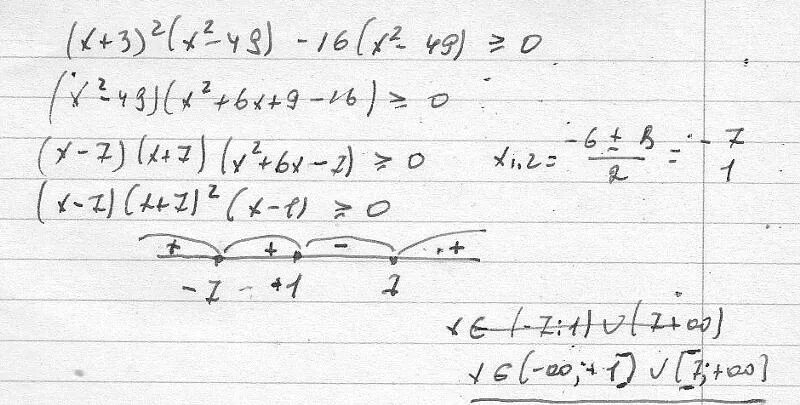 (x+3)²(x²-49) -16(x²-49) ≥ 0
(x²-49)(x²+6x+9-16) ≥ 0
(x-7)(x+7)(x²+6x-7) ≥ 0 x₁,₂ = (-6 ± 8)/2 = -7 1
(x-7)(x+7)²(x-1) ≥ 0
+ + - +
-7 +1 7
x ∈ (-7; 1) ∪ (7 +∞)
x ∈ (-∞; +1] ∪ [7; +∞)